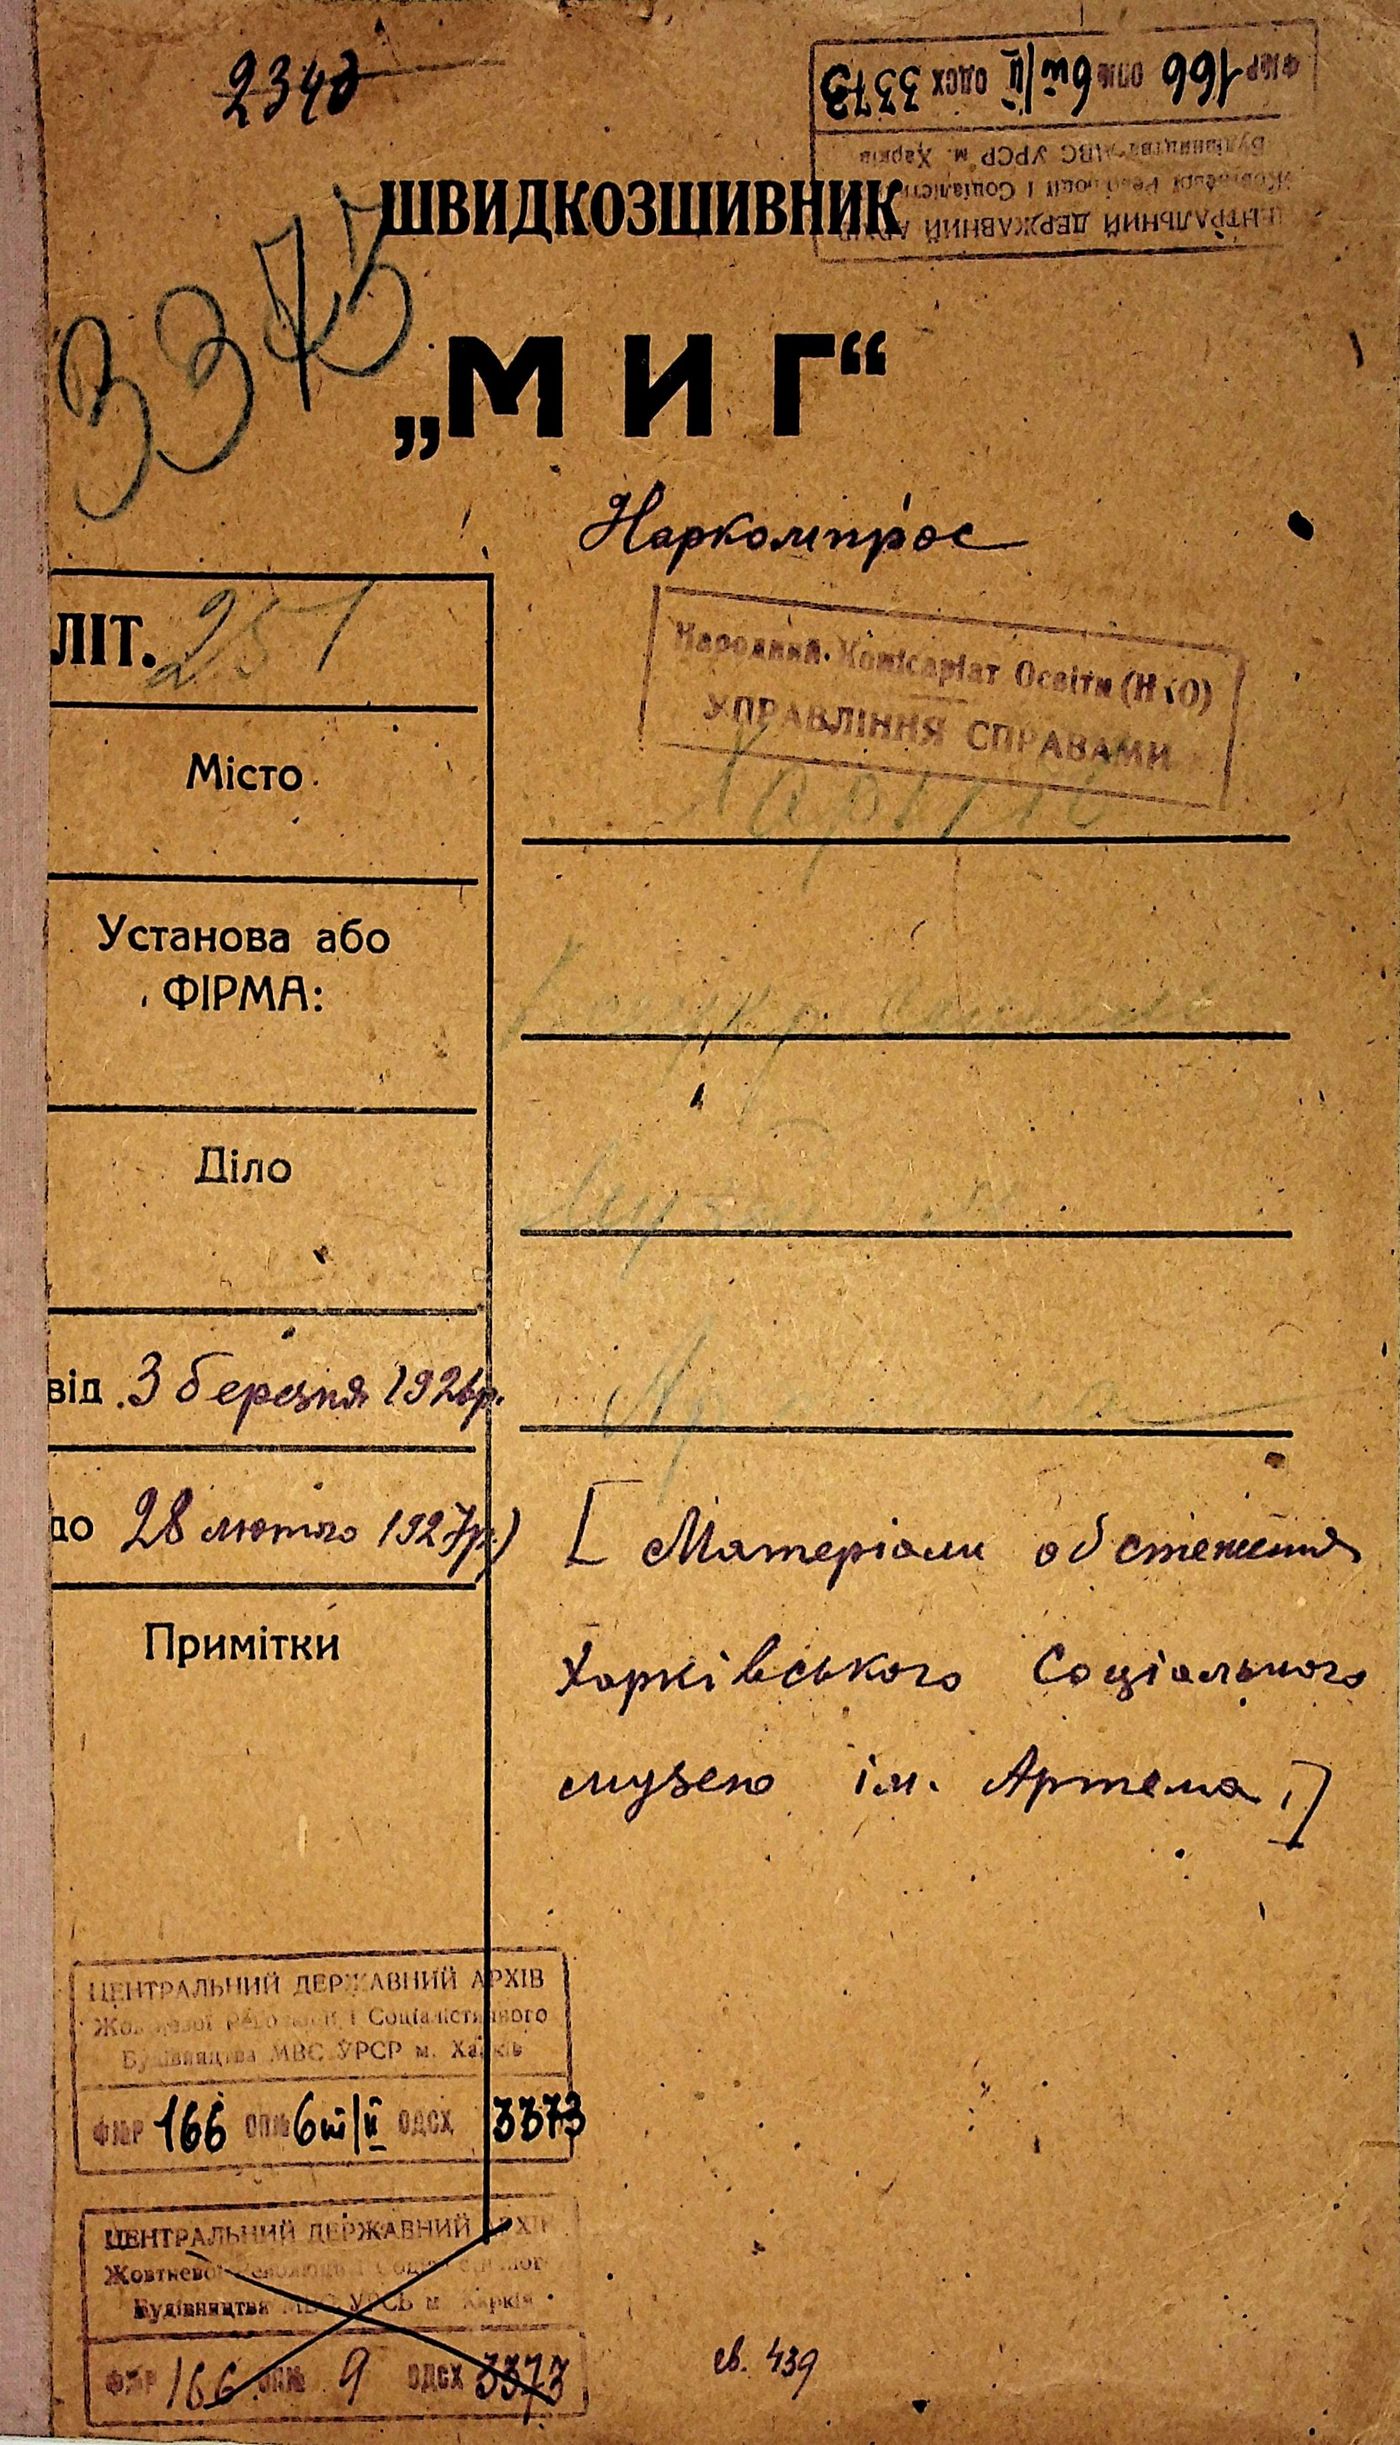 2340
ФЖР 166 ОПЖ 6т/ІІ ОДСХ 3373
Будівництва МВС УРСР м. Харків
Жовтневої Революції і Соціалістичного
ЦЕНТРАЛЬНИЙ ДЕРЖАВНИЙ АРХІВ
ШВИДКОЗШИВНИК
3375
„МИГ“
Наркомпрос
ЛІТ. 251
Народний Комісаріат Освіти (НКО)
УПРАВЛІННЯ СПРАВАМИ
Місто
Установа або
ФІРМА:
Діло
від 3 березня 1926р.
до 28 лютого 1927р.)
Примітки
[Матеріали обстеження
Харківського Соціального
музею ім. Артема]
ЦЕНТРАЛЬНИЙ ДЕРЖАВНИЙ АРХІВ
Жовтневої Революції і Соціалістичного
Будівництва МВС УРСР м. Харків
ФЖР 166 ОПЖ 6т/ІІ ОДСХ 3373
ЦЕНТРАЛЬНИЙ ДЕРЖАВНИЙ АРХІВ
Жовтневої Революції Соціалістичного
Будівництва МВС УРСР м Харків
ФЖР 166 ОПЖ 9 ОДСХ 3373
св. 439